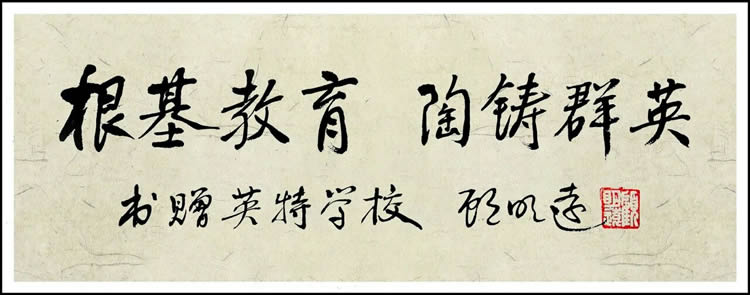 根基教育 陶铸群英
书赠英特学校 顾明远